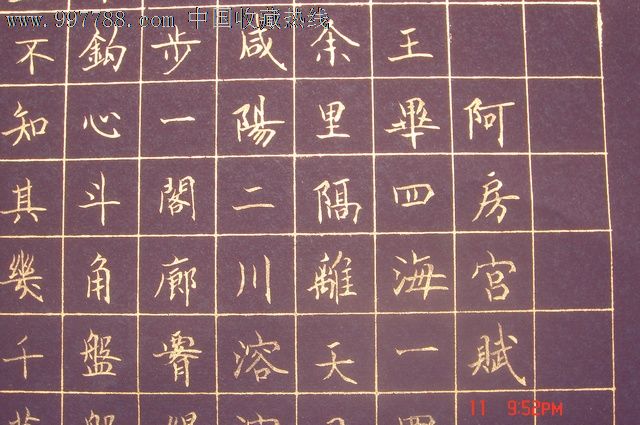 www.997788.com 中国收藏热线
阿房宮賦
王畢四海一
余里隔離天
咸陽二川溶
步一閣廊
鈎心斗角盤
不知其幾千
11 9:52PM